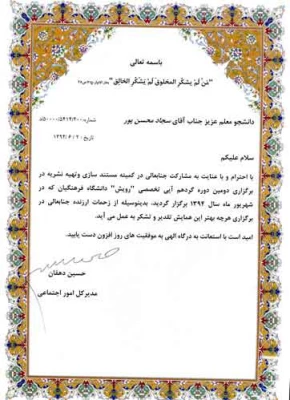 باسمه تعالی
"مَن لَم یَشکُرِ المَخلوق لَم یَشکُرِ الخالِق"
شماره:۵۰۰۰۰/۵۴۱۴/۲۰۰/د
دانشجو معلم عزیز جناب آقای سجاد محسن پور
تاریخ : ۱۳۹۴/۶/۲۰
سلام علیکم
با احترام و با عنایت به مشارکت جنابعالی در کمیته مستند سازی وتهیه نشریه در
برگزاری دومین دوره گردهم آیی تخصصی "رویش" دانشگاه فرهنگیان که در
شهریور ماه سال ۱۳۹۴ برگزار گردید، بدینوسیله از زحمات ارزنده جنابعالی در
برگزاری هرچه بهتر این همایش تقدیر و تشکر به عمل می آید.
امید است با استعانت به درگاه الهی به موفقیت های روز افزون دست یابید.
حسین دهقان
مدیرکل امور اجتماعی